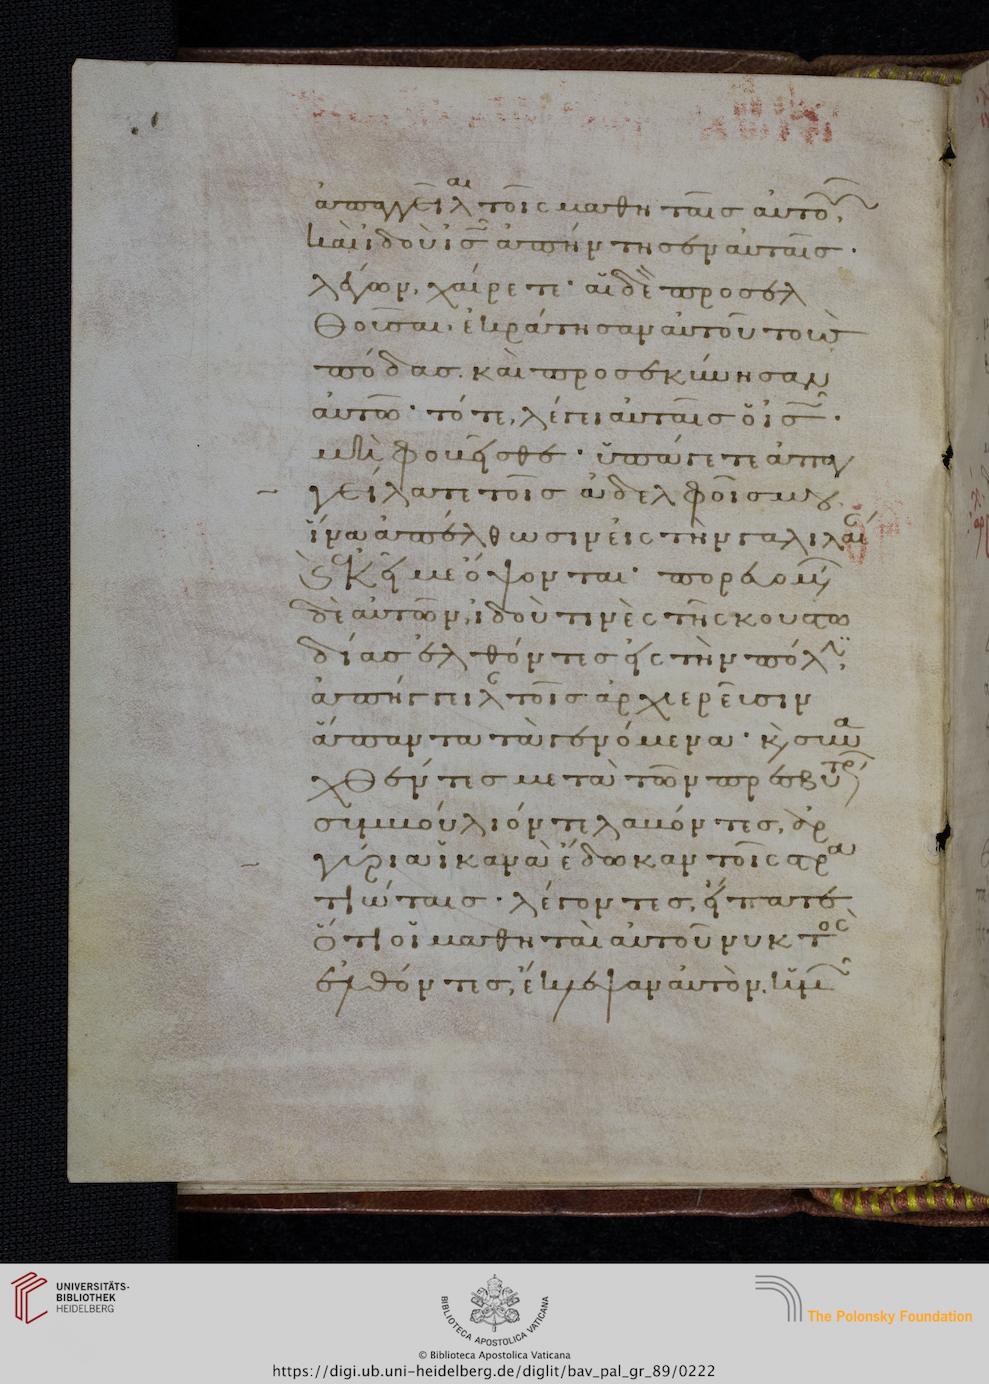 ἀπαγγεῖλαι τοῖς μαθηταῖς αὐτοῦ,
καὶ ἰδοὺ ἰς ἀπήντησεν αὐταῖς·
λέγων, χαίρετε· αἱ δὲ προσελ
θοῦσαι, ἐκράτησαν αὐτοῦ τοὺς
πόδας. καὶ προσεκύνησαν
αὐτῶ· τότε, λέγει αὐταῖς ὁ ἰς·
μὴ φοβεῖσθε· ὑπάγετε ἀπαγ
γείλατε τοῖς ἀδελφοῖς μου
ἵνα ἀπέλθωσιν εἰς τὴν γαλιλαί
κακεῖ με ὄψονται· πορευομ
δὲ αὐτῶν, ἰδοὺ τινὲς τῆς κουστω
δίας ἐλθόντες εἰς τὴν πόλιν,
ἀπήγγειλ τοῖς ἀρχιερεῦσιν
ἅπαντα τὰ γενόμενα· κ συνα
χθέντες μετὰ τῶν πρεσβυτρ
συμβούλιόν τε λαβόντες, ἀρ
γύρια ἱκανὰ ἔδωκαν τοῖς στρα
τιώταις· λέγοντες, εἴπατε
ὅτι οἱ μαθηταὶ αὐτοῦ νυκτος
ἐλθόντες, ἔκλεψαν αὐτὸν. ἡμ
UNIVERSITÄTS-
BIBLIOTHEK
HEIDELBERG
BIBLIOTECA APOSTOLICA VATICANA
The Polonsky Foundation
© Biblioteca Apostolica Vaticana
https://digi.ub.uni-heidelberg.de/diglit/bav_pal_gr_89/0222